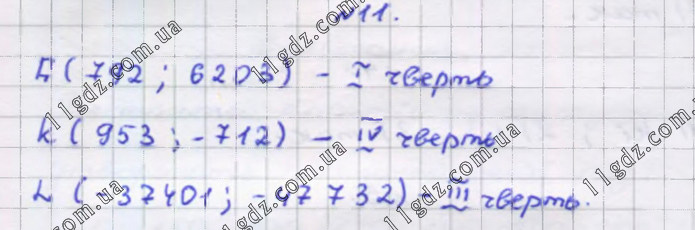 №11.
E (792 ; 6203) - I чверть
K (953 ; -712) - IV чверть
L (-37401 ; -47732) - III чверть.
11gdz.com.ua
11gdz.com.ua
11gdz.com.ua
11gdz.com.ua
11gdz.com.ua
11gdz.com.ua